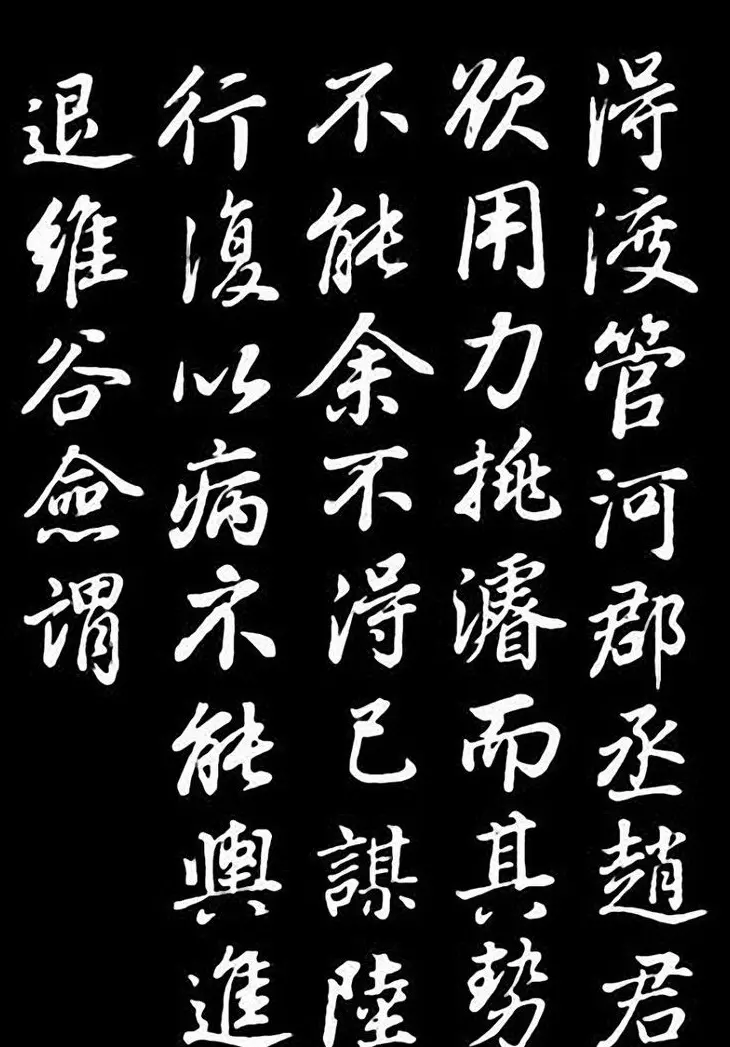 得渡管河郡丞趙君
欲用力挑濬而其勢
不能余不得已謀陸
行復以病不能輿進
退維谷僉謂